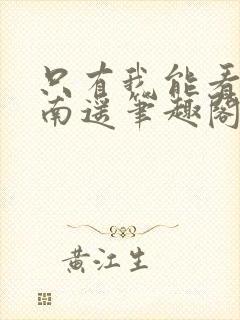 只有我能看
南遥筆趣閣
黄江生